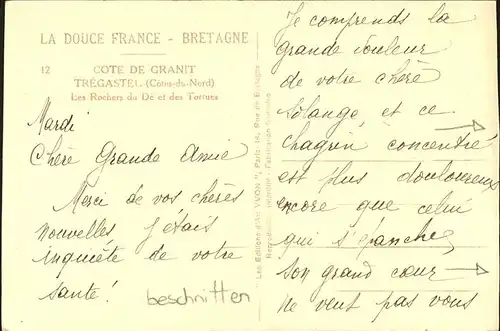 LA DOUCE FRANCE - BRETAGNE
12
COTE DE GRANIT
TRÉGASTEL (Côtes-du-Nord)
Les Rochers du Dé et des Tortues
Mardi
Chère Grande Amie
Merci de vos chères
nouvelles J'étais
inquiète de votre
santé!
beschnitten
Je comprends la
grande douleur
de votre chère
Solange, et ce
chagrin concentré
est plus douloureux
encore que celui
qui s'épanche,
son grand cœur
ne veut pas vous